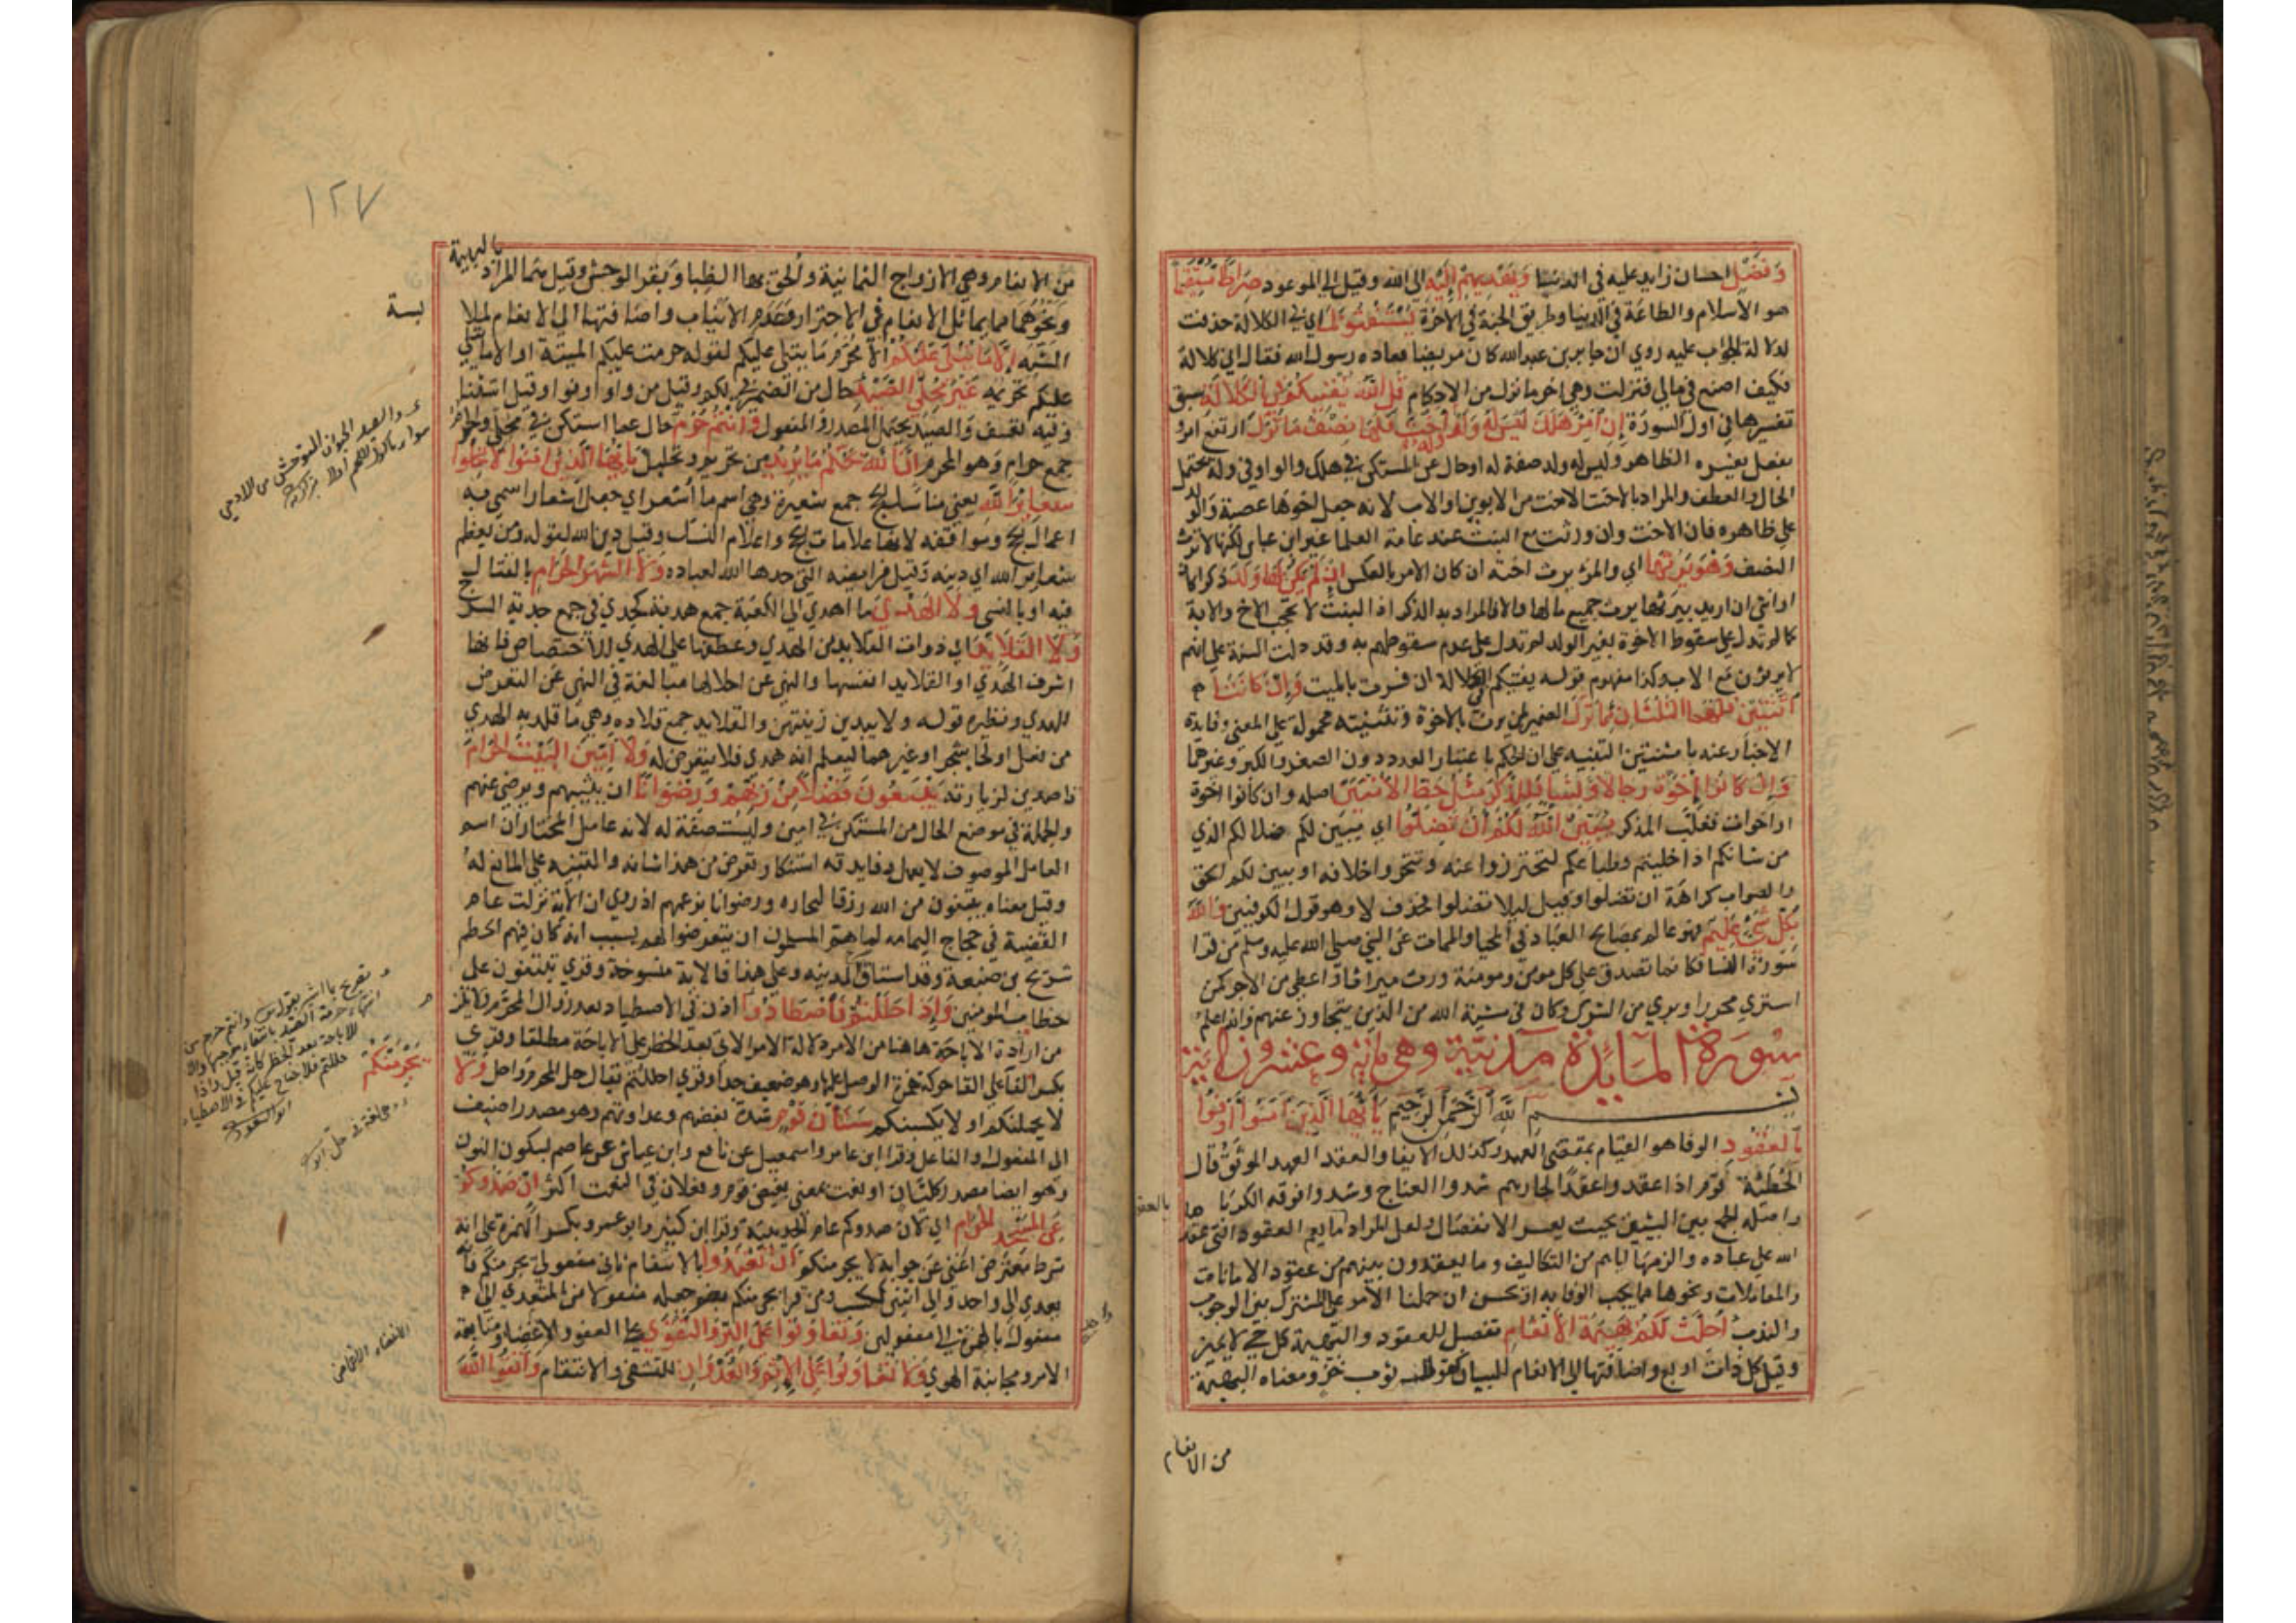 وَفَضْلٍ احسان زايد عليه في الدنيا وَيَهْدِيهِمْ إِلَيْهِ الى الله وقيل الى الموعود صِرَاطًا مُسْتَقِيمًا
هو الاسلام والطاعة في الدنيا وطريق الجنة في الاخرة يَسْتَفْتُونَكَ اي في الكلالة حذفت
لدلالة الجواب عليه روي ان جابر بن عبد الله كان مريضا فعاده رسول الله فقال اني كلالة
فكيف اصنع في مالي فنزلت وهي اخر ما نزل من الاحكام قُلِ اللَّهُ يُفْتِيكُمْ فِي الْكَلَالَةِ سبق
تفسيرها في اول السورة إِنِ امْرُؤٌ هَلَكَ لَيْسَ لَهُ وَلَدٌ وَلَهُ أُخْتٌ فَلَهَا نِصْفُ مَا تَرَكَ ارتفع امرؤ
بفعل يفسره الظاهر وليس له ولد صفة له او حال عن المستكن في هلك والواو في وله يحتمل
الحال والعطف والمراد بالاخت الاخت من الابوين او الاب لانه جعل اخوها عصبة والولد
على ظاهره فان الاخت وان ورثت مع البنت عند عامة العلما غير ابن عباس لكنها لا ترث
النصف وَهُوَ يَرِثُهَا اي والمرء يرث اخته ان كان الامر بالعكس إِنْ لَمْ يَكُنْ لَهَا وَلَدٌ ذكرا كان
او انثى ان اريد بيرثها يرث جميع مالها والا فالمراد به الذكر اذ البنت لا تحجب الاخ والاية
كما لم تدل على سقوط الاخوة بغير الولد لم تدل على عدم سقوطهم به وقد دلت السنة على انهم
لا يرثون مع الاب وكذا مفهوم قوله يفتيكم في الكلالة ان فسرت بالميت فَإِنْ كَانَتَا
اثْنَتَيْنِ فَلَهُمَا الثُّلُثَانِ مِمَّا تَرَكَ الضمير لمن يرث بالاخوة وتثنيته محمولة على المعنى وفايدة
الاخبار عنه باثنتين التنبيه على ان الحكم باعتبار العدد دون الصغر والكبر وغيرهما
وَإِنْ كَانُوا إِخْوَةً رِجَالًا وَنِسَاءً فَلِلذَّكَرِ مِثْلُ حَظِّ الْأُنْثَيَيْنِ اصله وان كانوا اخوة
او اخوات فغلب المذكر يُبَيِّنُ اللَّهُ لَكُمْ أَنْ تَضِلُّوا اي يبين لكم ضلالكم الذي
من شانكم اذا خليتم وطباعكم لتحترزوا عنه وتتحروا خلافه او يبين لكم الحق
والصواب كراهة ان تضلوا وقيل ليلا تضلوا فحذف لا وهو قول الكوفيين وَاللَّهُ
بِكُلِّ شَيْءٍ عَلِيمٌ فهو عالم بمصالح العباد في المحيا والممات عن النبي صلى الله عليه وسلم من قرا
سورة النسا فكانما تصدق على كل مومن ومومنة ورث ميراثا واعطي من الاجر كمن
اشترى محررا وبري من الشرك وكان في مشية الله من الذين يتجاوز عنهم والله اعلم
سُورَةُ الْمَائِدَةِ مَدَنِيَّةٌ وهي مائة وعشرون اية
بسم الله الرحمن الرحيم يَا أَيُّهَا الَّذِينَ آمَنُوا أَوْفُوا
بِالْعُقُودِ الوفا هو القيام بمقتضى العهد وكذلك الايفا والعقد العهد الموثق قال
الحطيئة قوم اذا عقدوا عقدا لجارهم شدوا العناج وشدوا فوقه الكربا
واصله الجمع بين الشيئين بحيث يعسر الانفصال ولعل المراد ما يعم العقود التي عقد
الله على عباده والزمها اياهم من التكاليف وما يعقدون بينهم من عقود الامانات
والمعاملات ونحوها مما يجب الوفا به او يحسن ان حملنا الامر على المشترك بين الوجوب
والندب أُحِلَّتْ لَكُمْ بَهِيمَةُ الْأَنْعَامِ تفصيل للعقود والبهيمة كل حي لا يميز
وقيل كل ذات اربع واضافتها الى الانعام للبيان كقولك ثوب خز ومعناه البهيمة
من الانعام
١٢٧
من الانعام وهي الازواج الثمانية والحق بها الظبا وبقر الوحش وقيل هما المراد بالبهيمة
ونحوهما مما يماثل الانعام في الاجترار وعدم الانياب واضافتها الى الانعام لملابسة
الشبه إِلَّا مَا يُتْلَى عَلَيْكُمْ الا محرم ما يتلى عليكم لقوله حرمت عليكم الميتة او الا ما يتلى
عليكم تحريمه غَيْرَ مُحِلِّي الصَّيْدِ حال من الضمير في لكم وقيل من واو اوفوا وقيل استثنا
وفيه تعسف والصيد يحتمل المصدر والمفعول وَأَنْتُمْ حُرُمٌ حال عما استكن في محلي والحرم
جمع حرام وهو المحرم إِنَّ اللَّهَ يَحْكُمُ مَا يُرِيدُ من تحريم وتحليل يَا أَيُّهَا الَّذِينَ آمَنُوا لَا تُحِلُّوا
شَعَائِرَ اللَّهِ يعني مناسك الحج جمع شعيرة وهي اسم ما اشعر اي جعل شعارا سمي به
اعمال الحج ومواقفه لانها علامات الحج واعلام النسك وقيل دين الله لقوله ومن يعظم
شعاير الله اي دينه وقيل فرايضه التي حدها الله لعباده وَلَا الشَّهْرَ الْحَرَامَ بالقتال
فيه او بالنسي وَلَا الْهَدْيَ ما اهدي الى الكعبة جمع هدية كجدي في جمع جدية السرج
وَلَا الْقَلَائِدَ اي ذوات القلايد من الهدي وعطفها على الهدي للاختصاص فانها
اشرف الهدي او القلايد انفسها والنهي عن احلالها مبالغة في النهي عن التعرض
للهدي ونظيره قوله ولا يبدين زينتهن والقلايد جمع قلاده وهي ما قلد به الهدي
من نعل او لحا شجر او غيرهما ليعلم انه هدي فلا يتعرض له وَلَا آمِّينَ الْبَيْتَ الْحَرَامَ
قاصدين لزيارته يَبْتَغُونَ فَضْلًا مِنْ رَبِّهِمْ وَرِضْوَانًا ان يثيبهم ويرضى عنهم
والجملة في موضع الحال من المستكن في امين وليست صفة له لانه عامل والمختار ان اسم
العامل الموصوف لا يعمل وفايدته استنكار تعرض من هذا شانه والتنبيه على المانع له
وقيل معناه يبتغون من الله رزقا بالتجاره ورضوانا بزعمهم اذ روي ان الاية نزلت عام
القضية في حجاج اليمامه لما هم المسلمون ان يتعرضوا لهم بسبب انه كان فيهم الحطم
شريح بن ضبيعة وقد استاق سرح المدينه وعلى هذا فالاية منسوخة وقري تبتغون على
خطاب المومنين وَإِذَا حَلَلْتُمْ فَاصْطَادُوا اذن في الاصطياد بعد زوال المحرم ولا يلزم
من ارادة الاباحة هاهنا من الامر دلالة الامر الاتي بعد الحظر على الاباحة مطلقا وقري
بكسر الفا على القا حركة همزة الوصل عليها وهو ضعيف جدا وقري احللتم يقال حل المحرم واحل وَلَا
يَجْرِمَنَّكُمْ
لا يحملنكم او لا يكسبنكم شَنَآنُ قَوْمٍ شدة بغضهم وعداوتهم وهو مصدر اضيف
الى المفعول او الفاعل وقرا ابن عامر واسمعيل عن نافع وابن عياش عن عاصم بسكون النون
وهو ايضا مصدر كليّان او نعت بمعنى بغيض قوم وفعلان في النعت اكثر أَنْ صَدُّوكُمْ
عَنِ الْمَسْجِدِ الْحَرَامِ اي لان صدوكم عام الحديبية وقرا ابن كثير وابو عمرو بكسر الهمزة على انه
شرط معترض اغنى عن جوابه لا يجرمنكم أَنْ تَعْتَدُوا بالانتقام ثاني مفعولي يجرمنكم فانه
يعدى الى واحد والى اثنين ككسب ومن قرا يجرمنكم بضم جعله منقولا من المتعدي الى
مفعول بالهمزة الى مفعولين وَتَعَاوَنُوا عَلَى الْبِرِّ وَالتَّقْوَى على العفو والاغضاء ومتابعة
الامر ومجانبة الهوى وَلَا تَعَاوَنُوا عَلَى الْإِثْمِ وَالْعُدْوَانِ للتشفي والانتقام وَاتَّقُوا اللَّهَ